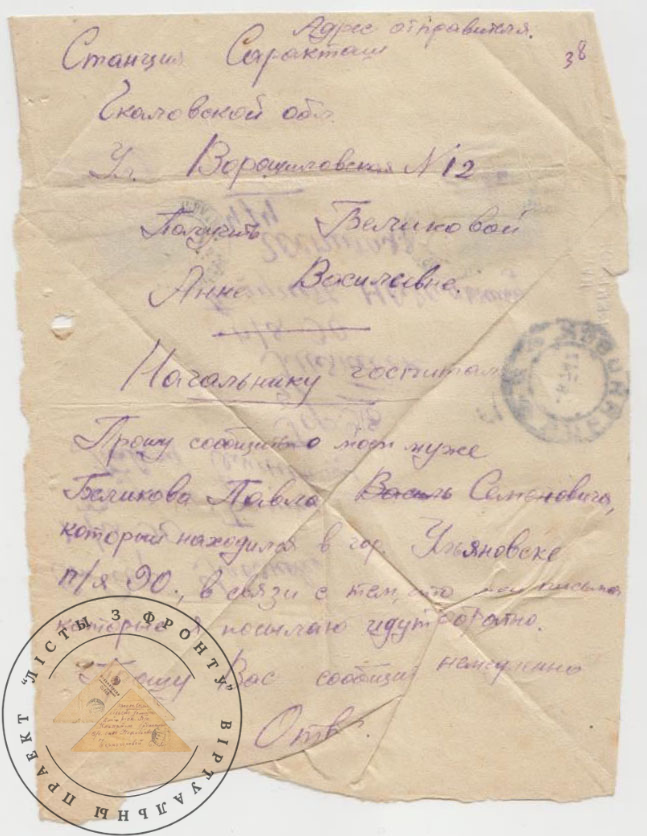 Адрес отправителя.
Станция Саракташ
38
Чкаловской обл.
Ул. Ворошиловская N 12
Получить Беликовой
Анне Василевне.
Начальнику госпиталя
Прошу сообщить о моем муже
Беликова Павла Василь Семеновича,
который находился в гор. Ульяновске
п/я 90., в связи с тем, что мои письма
которые я посылаю идут обратно.
Прошу Вас сообщить немедленно
Отв.
"ЛІСТЫ З ФРОНТУ" ВІРТУАЛЬНЫ ПРАЕКТ